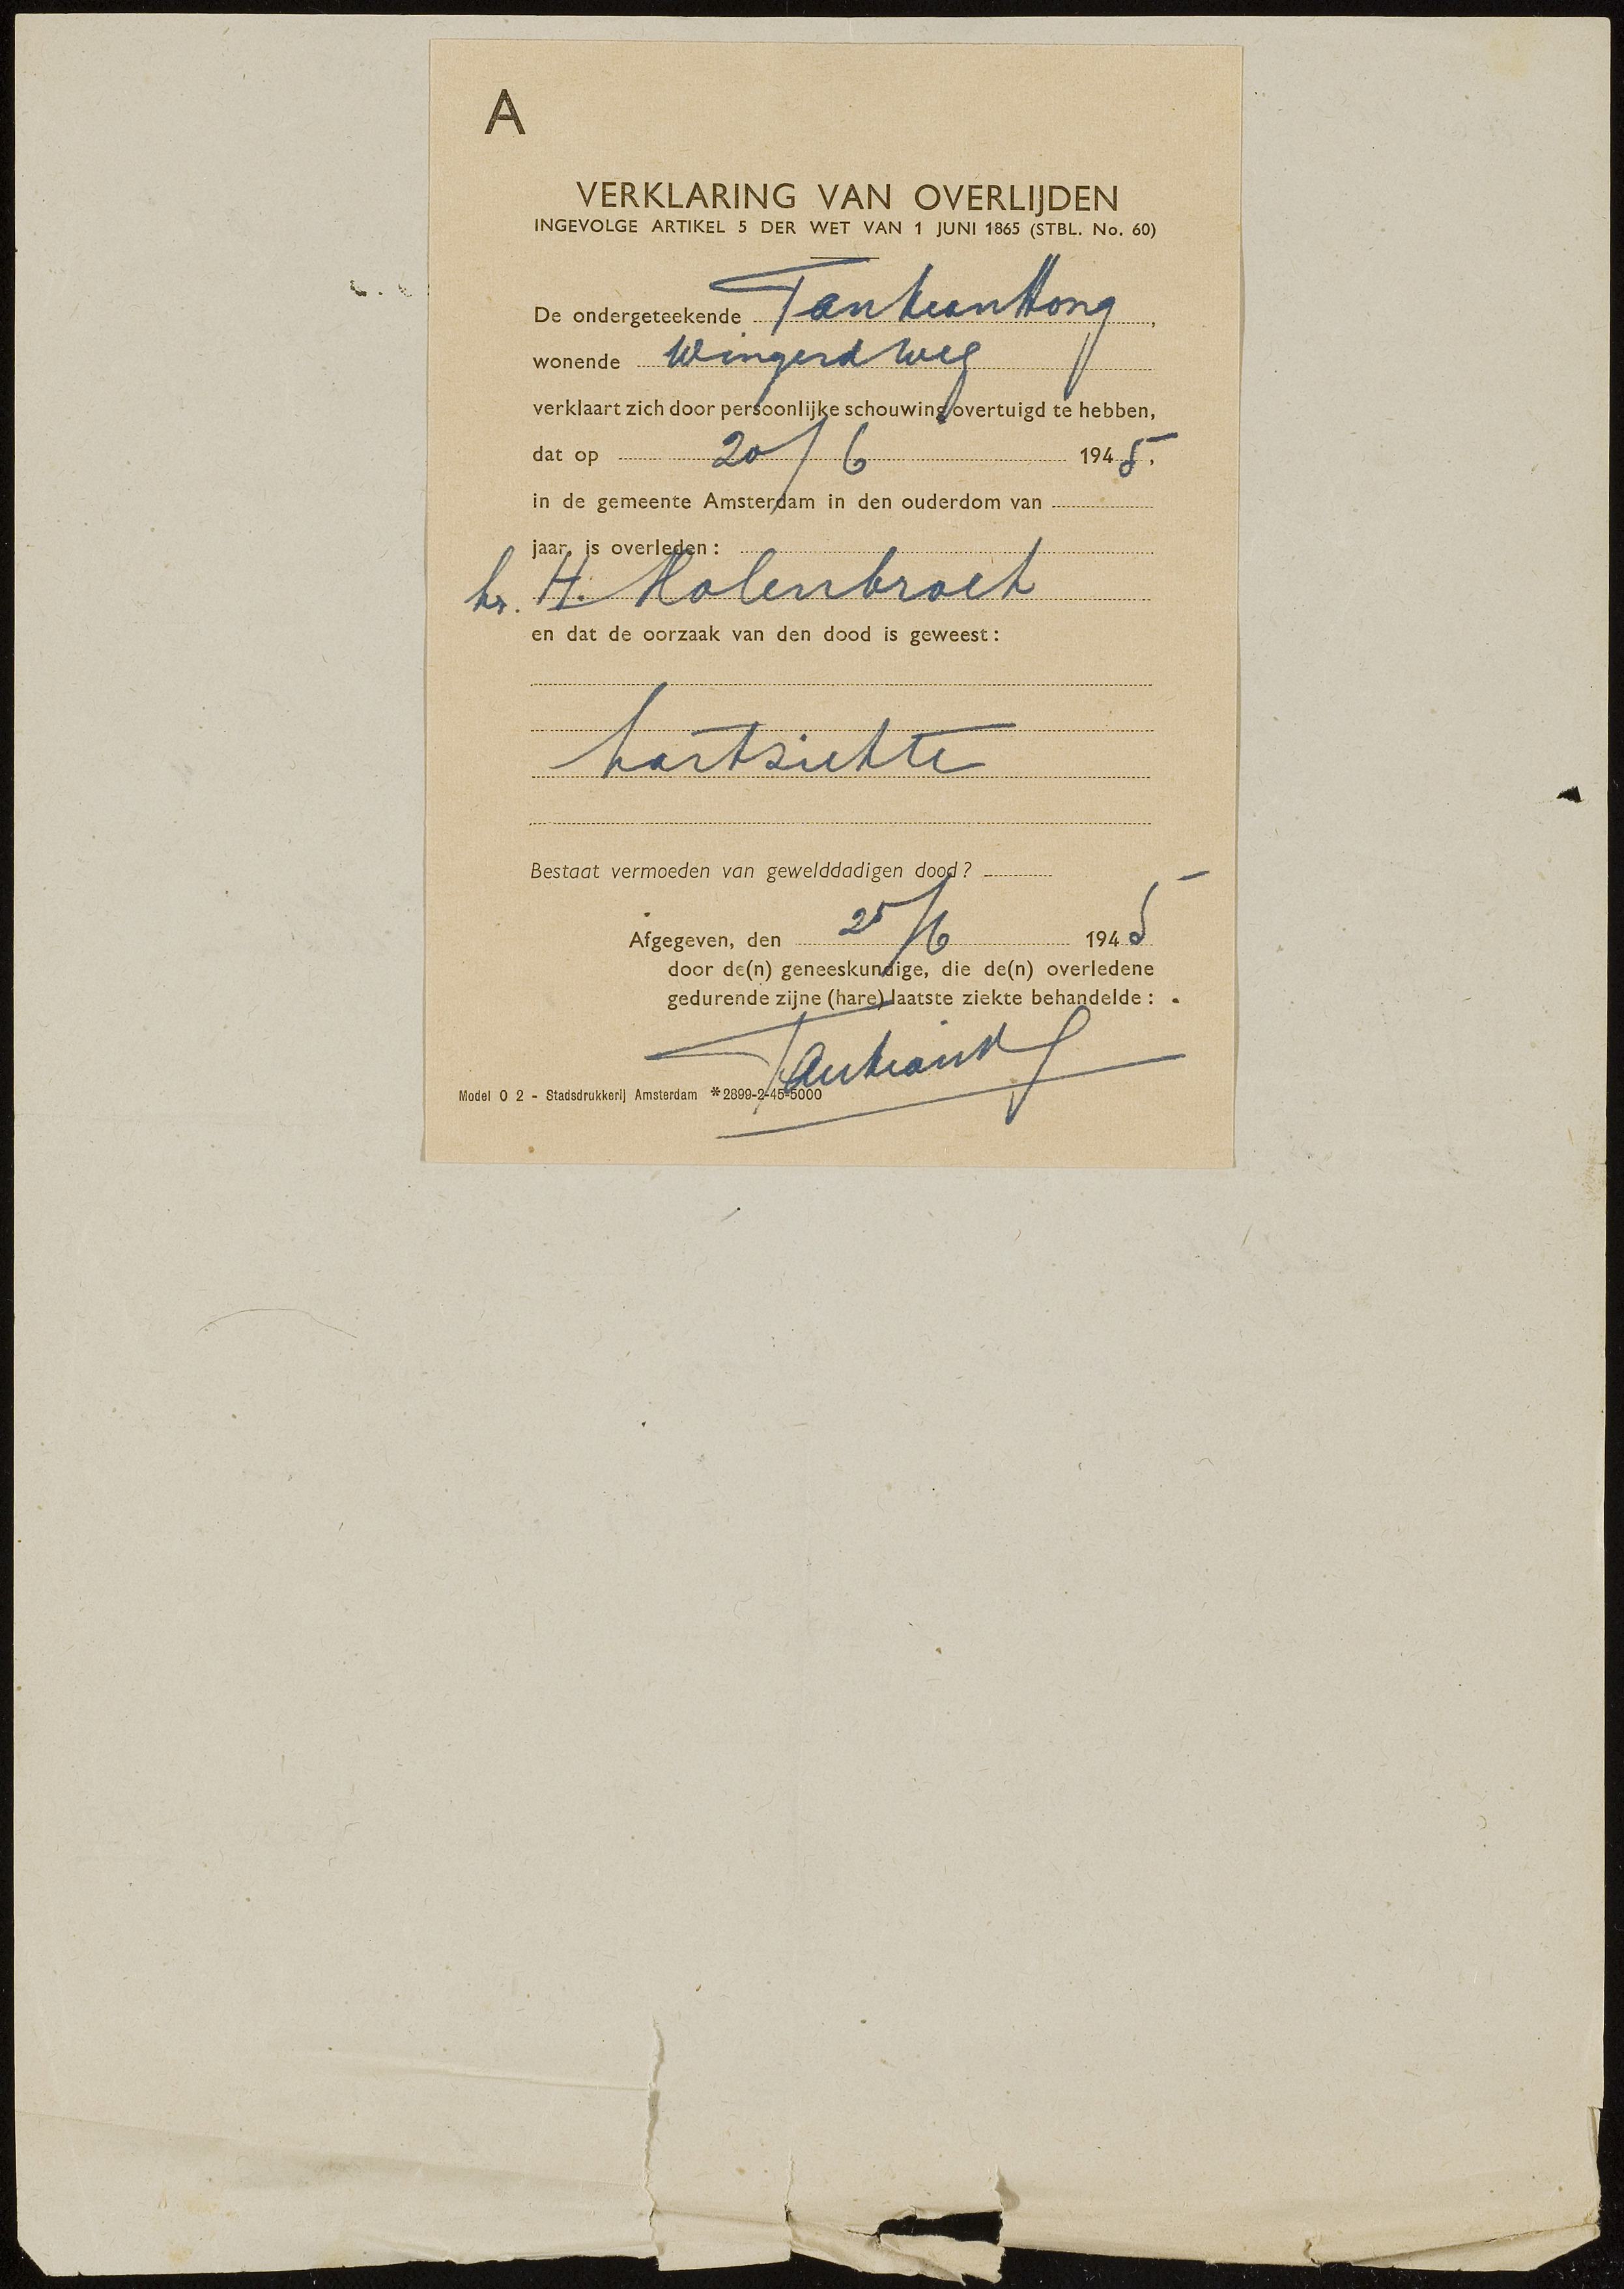 A
VERKLARING VAN OVERLIJDEN
INGEVOLGE ARTIKEL 5 DER WET VAN 1 JUNI 1865 (STBL. No. 60)
De ondergeteekende Tan Kian Hong,
wonende Wingerdweg
verklaart zich door persoonlijke schouwing overtuigd te hebben,
dat op 20/6 1945,
in de gemeente Amsterdam in den ouderdom van
jaar, is overleden:
hr. H. Molenbroek
en dat de oorzaak van den dood is geweest:
hartziekte
Bestaat vermoeden van gewelddadigen dood?
Afgegeven, den 25/6 1945
door de(n) geneeskundige, die de(n) overledene
gedurende zijne (hare) laatste ziekte behandelde:
Model O 2 - Stadsdrukkerij Amsterdam *2899-2-45-5000